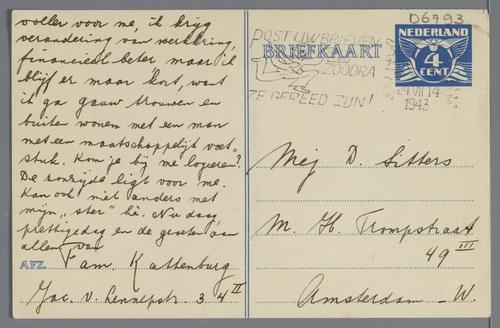 voller voor me, ik krijg
verandering van werkkring,
financieel beter maar ik
blijf er maar kort, want
ik ga gauw trouwen en
buiten wonen met een man
met een maatschappelijk voet-
stuk. Kom je bij me logeren?
De zonzijde ligt voor me.
Kan ook niet anders met
mijn "ster" hè. Nu dag,
prettige dag en de groeten aan
allen van
AFZ. Fam. Kattenburg
Jac. v. Lennepstr. 34 II
D6793
POST UW BRIEVEN
ZOODRA
ZE GEREED ZIJN!
BRIEFKAART
NEDERLAND
4
CENT
24 VII 14
1943
Mej D. Sitters
M. H. Trompstraat
49 III
Amsterdam - W.